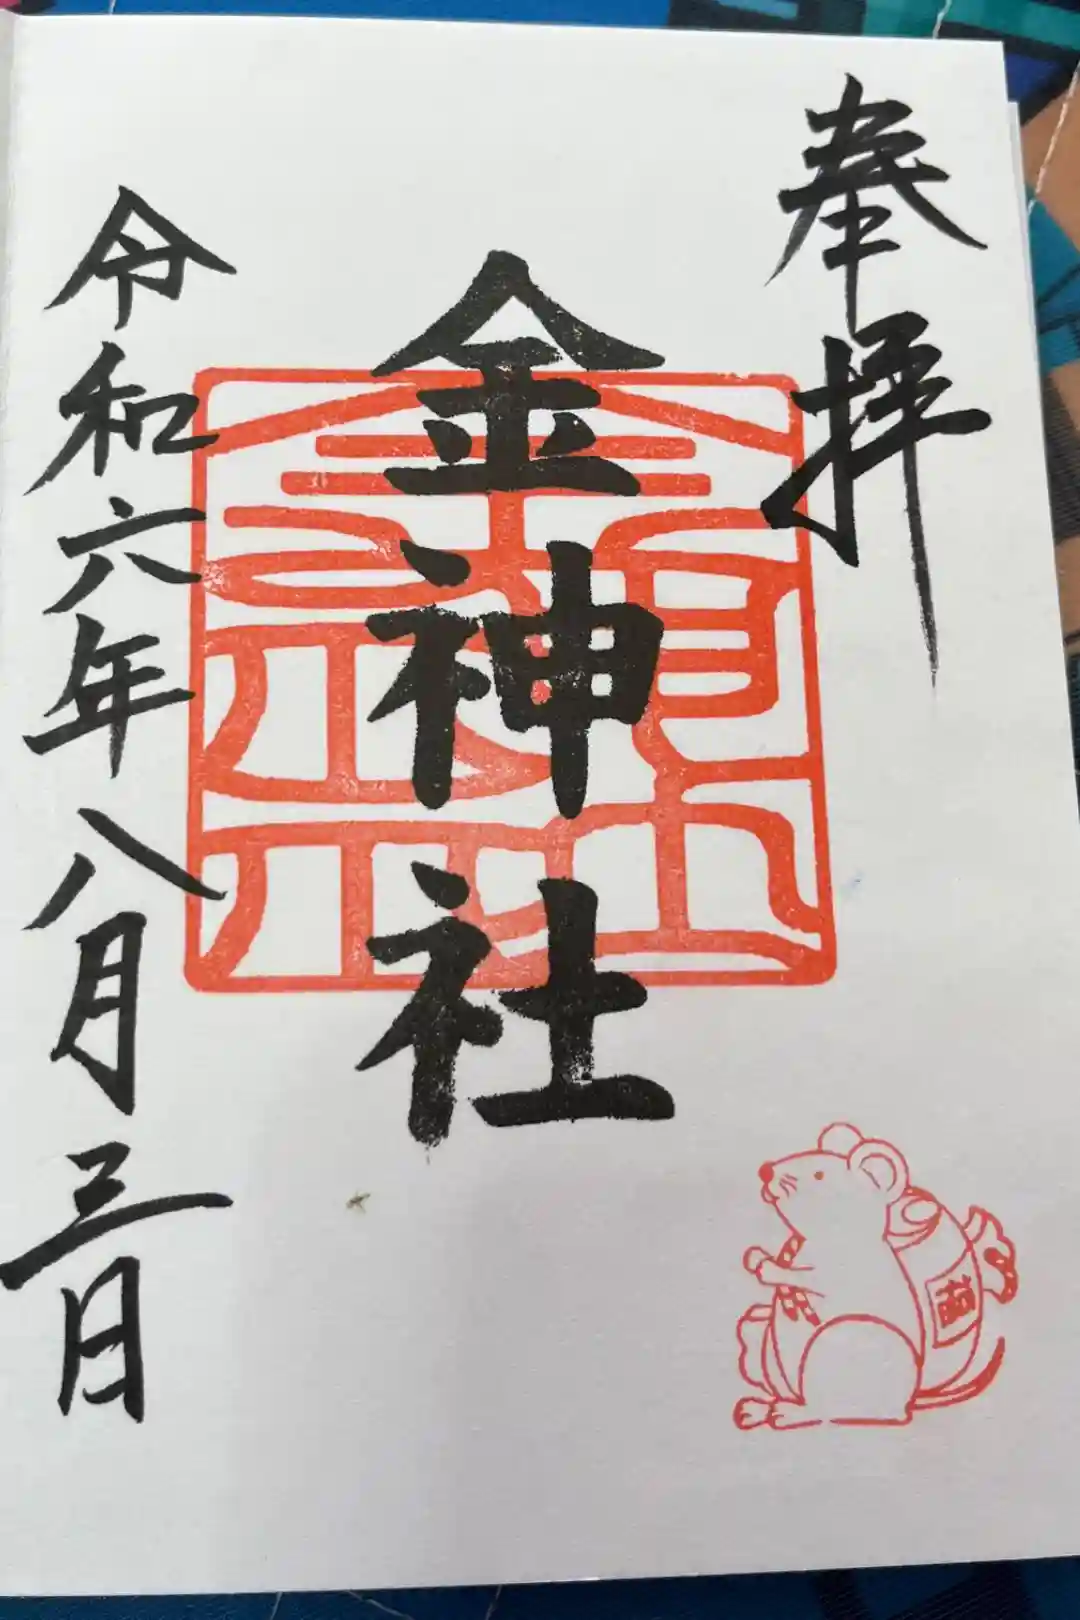 奉拝
金神社
令和六年八月三日
福